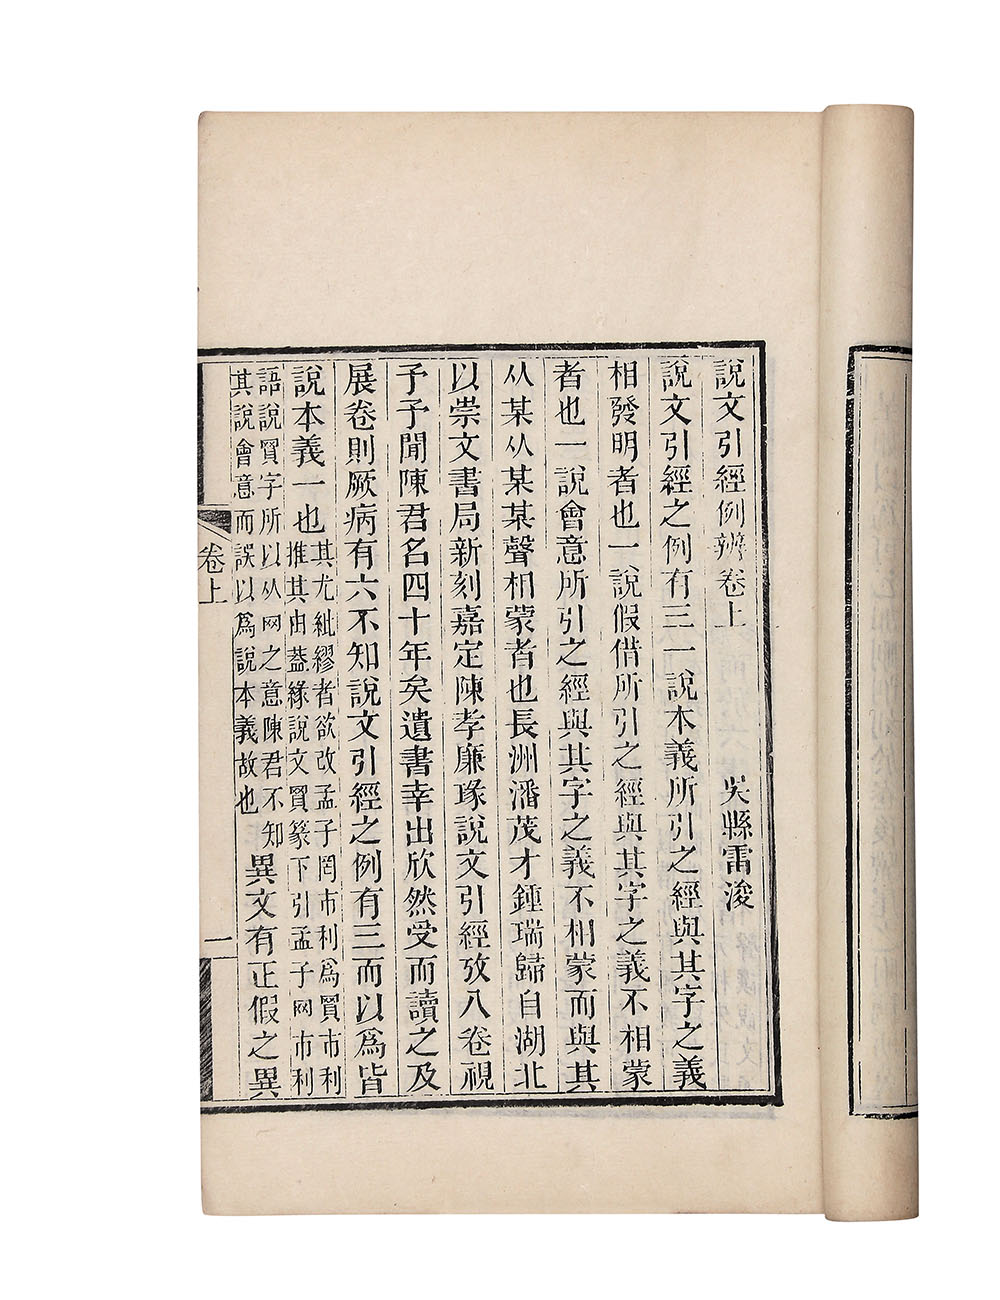 說文引經例辨卷上
吳縣雷浚
說文引經之例有三一說本義所引之經與其字之義
相發明者也一說假借所引之經與其字之義不相蒙
者也一說會意所引之經與其字之義不相蒙而與其
从某从某某聲相蒙者也長洲潘茂才鍾瑞歸自湖北
以崇文書局新刻嘉定陳孝廉瑑說文引經攷八卷視
予予聞陳君名四十年矣遺書幸出欣然受而讀之及
展卷則厥病有六不知說文引經之例有三而以爲皆
說本義一也
其尤紕繆者欲改孟子罔市利爲買市利
推其由葢緣說文買篆下引孟子网市利
語說買字所以从网之意陳君不知
其說會意而誤以爲說本義故也
異文有正假之異
卷上
一